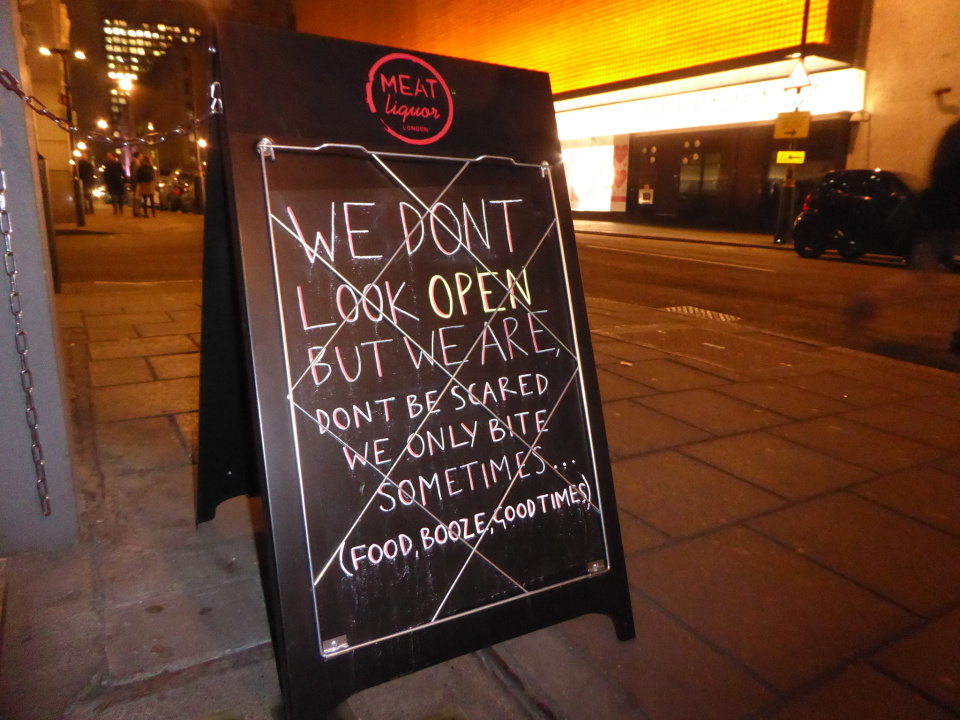 MEAT
liquor
LONDON
WE DONT
LOOK OPEN
BUT WE ARE,
DONT BE SCARED
WE ONLY BITE
SOMETIMES...
(FOOD, BOOZE, GOOD TIMES)